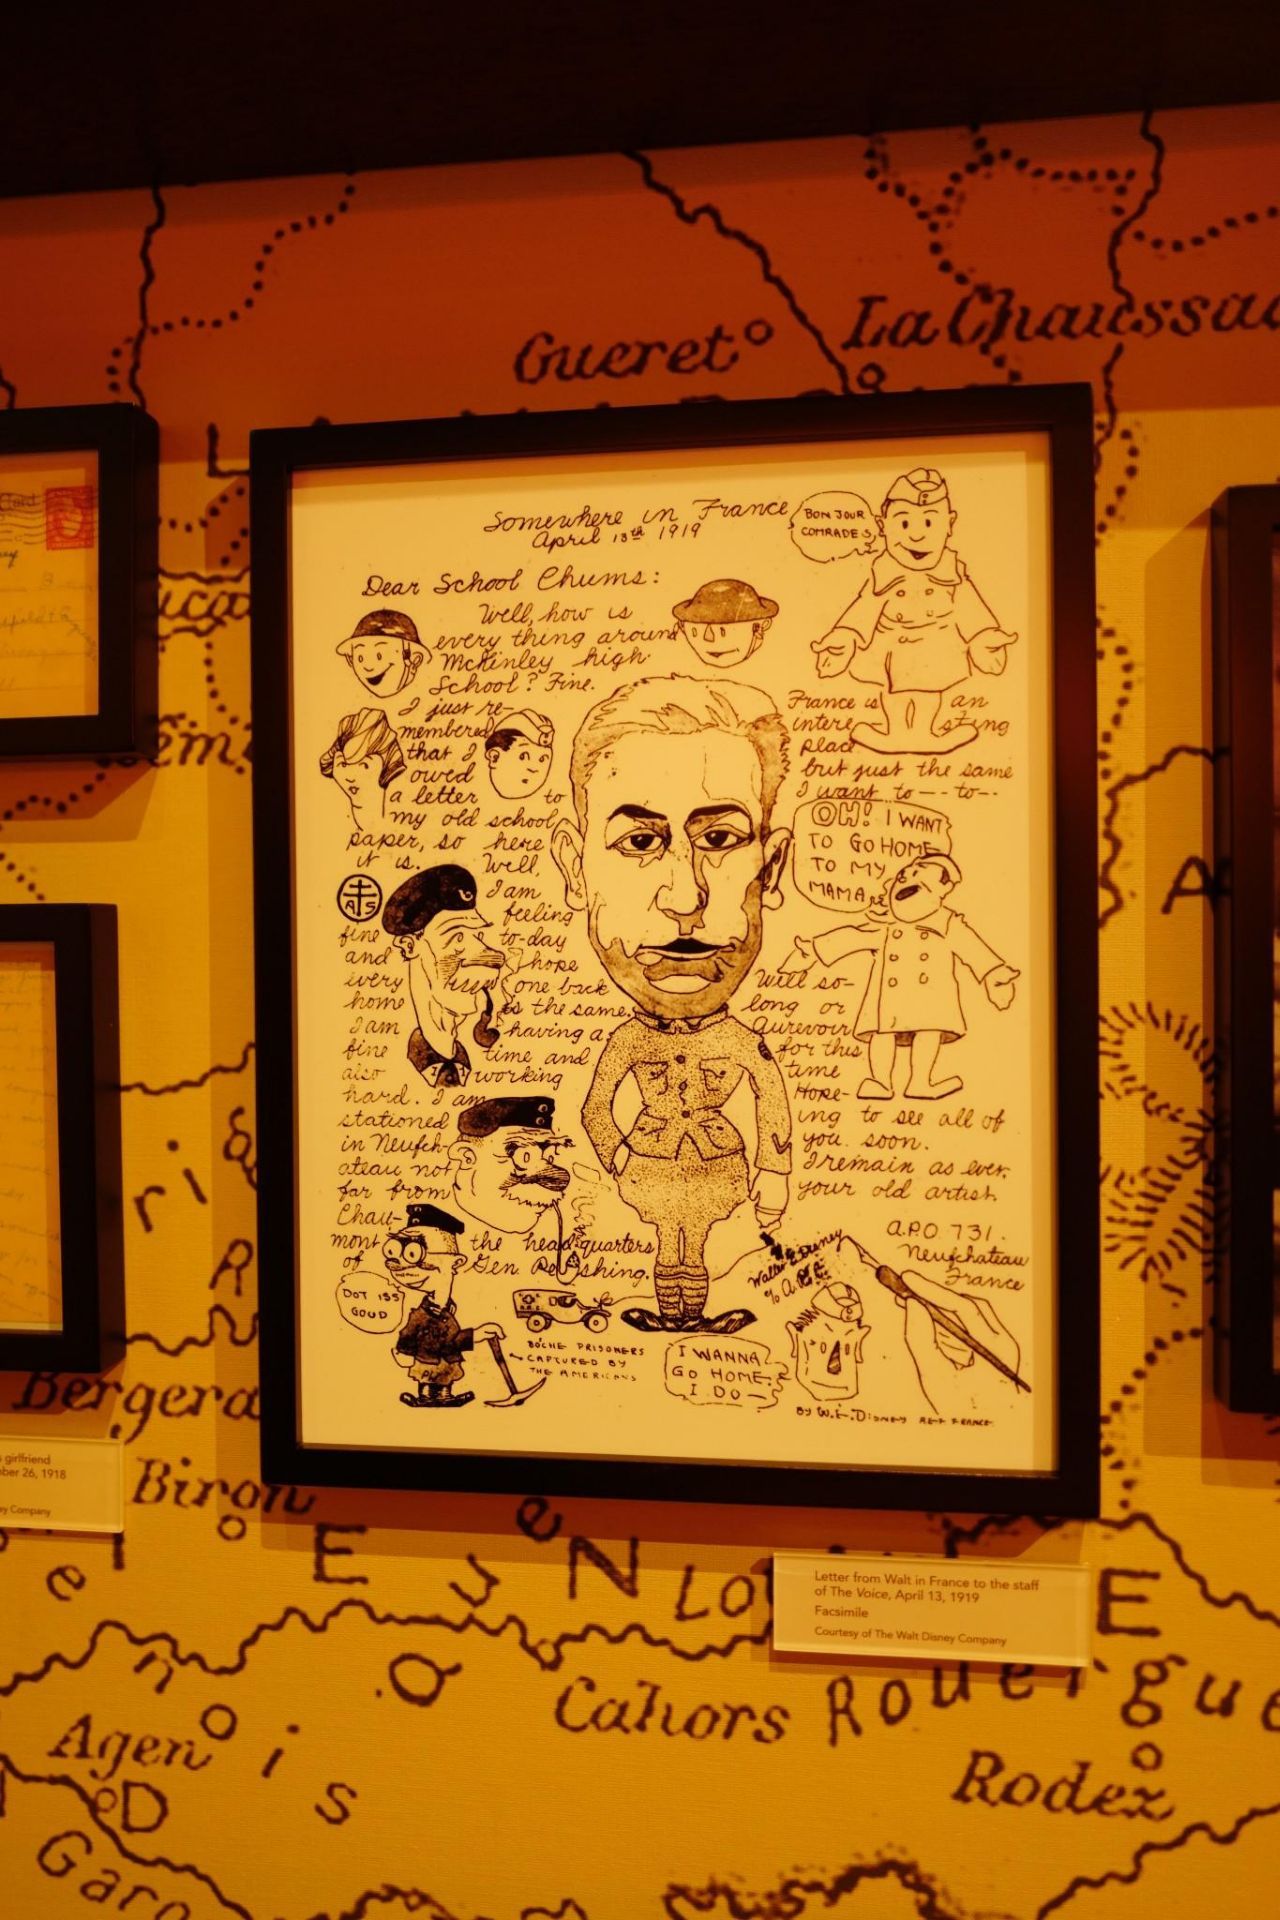 Gueret
La Chaussa
Somewhere in France
April 13th 1919
BON JOUR
COMRADES
Dear School Chums:
Well, how is
every thing around
McKinley high
School? Fine.
I just re-
membered
that I
owed
a letter to
my old school
paper, so here
it is. Well,
I am
feeling
fine to-day
and hope
every one back
home is the same.
I am having a
fine time and
also working
hard. I am
stationed
in Neufch-
ateau not
far from
Chau-
mont the headquarters
of Gen Pershing.
A S
DOT ISS
GOUD
BOCHE PRISONERS
CAPTURED BY
THE AMERICANS
France is an
interesting
place
but just the same
I want to -- to--
OH! I WANT
TO GO HOME
TO MY
MAMA
Well so-
long or
Aurevoir
for this
time
Hope-
ing to see all of
you soon.
I remain as ever.
your old artist.
Walter E Disney
A.P.O 731.
Neufchateau
France
I WANNA
GO HOME.
I DO —
BY W.E.DISNEY A.E.F FRANCE
Bergera
Biron
s girlfriend
ber 26, 1918
ey Company
Letter from Walt in France to the staff
of The Voice, April 13, 1919
Facsimile
Courtesy of The Walt Disney Company
Cahors
Rouergue
Agen
Rodez
Garo